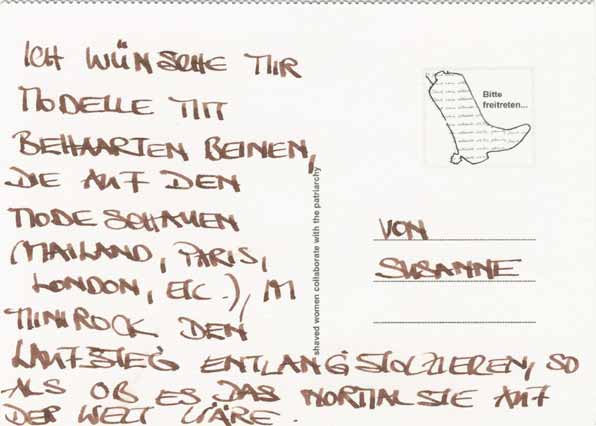 ICH WÜNSCHE MIR
MODELLE MIT
BEHAARTEN BEINEN,
DIE AUF DEN
MODESCHAUEN
(MAILAND, PARIS,
LONDON, ETC.), IM
MINIROCK DEN
LAUFSTEG ENTLANG STOLZIEREN, SO
ALS OB ES DAS NORMALSTE AUF
DER WELT WÄRE.
shaved women collaborate with the patriarchy
Bitte
freitreten...
VON
SUSANNE